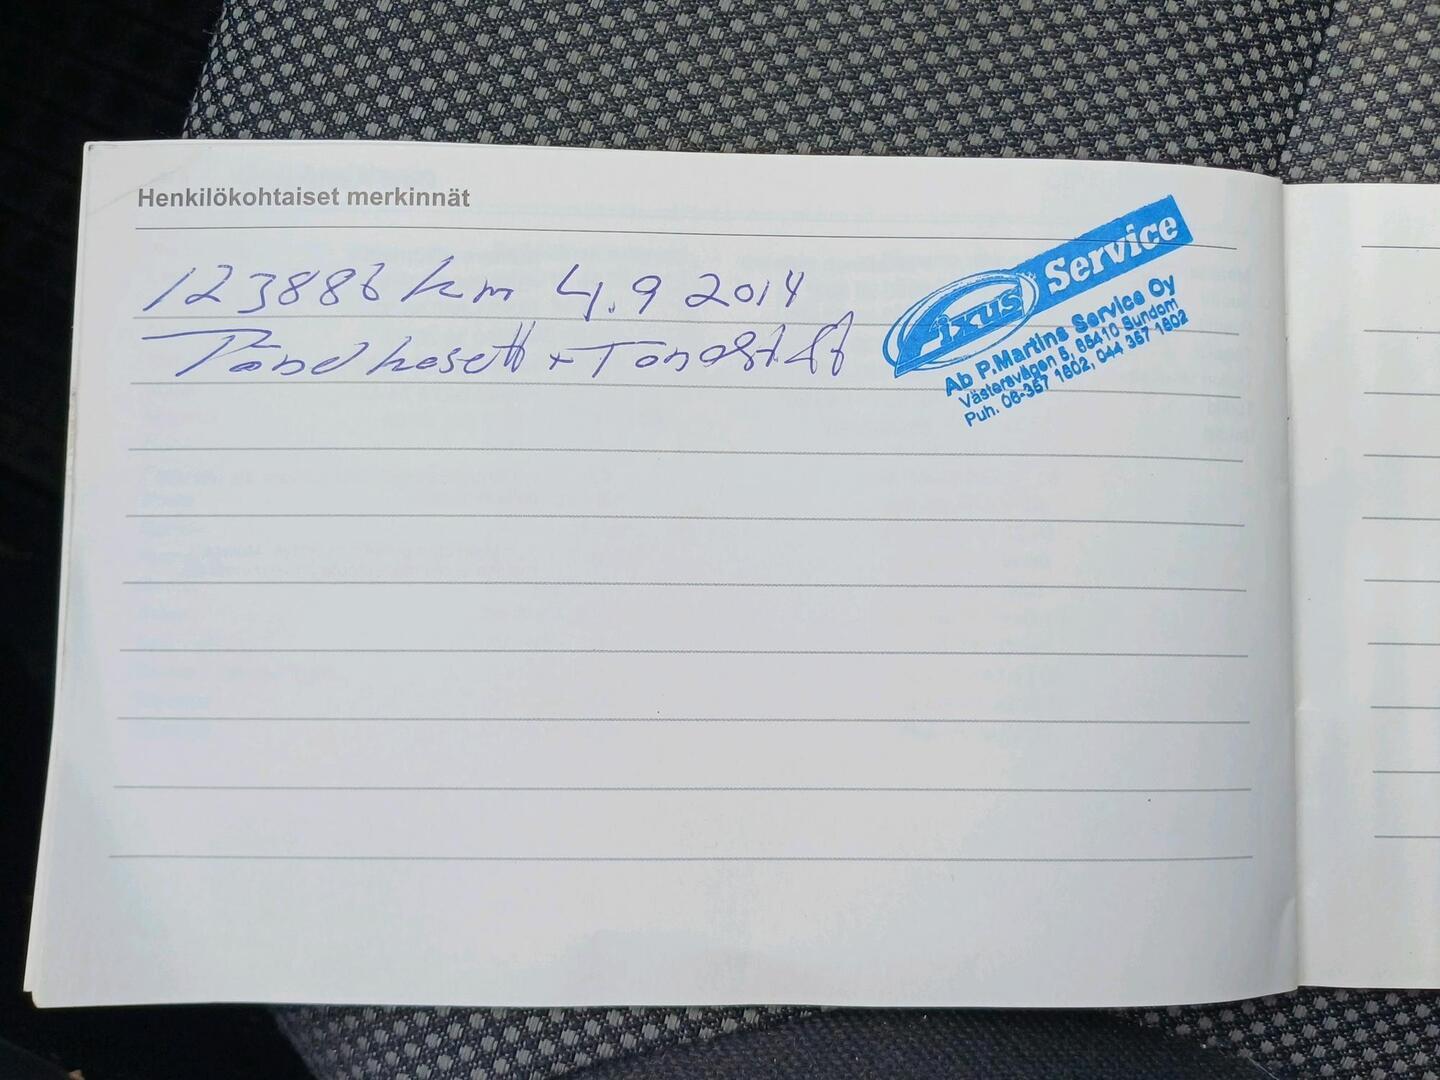 Henkilökohtaiset merkinnät
123886 km 4.9 2014
Tändkasett + Tändstift
Fixus Service
Ab P.Martins Service Oy
Västervägen 5, 65410 Sundom
Puh. 06-357 1802, 044 357 1802